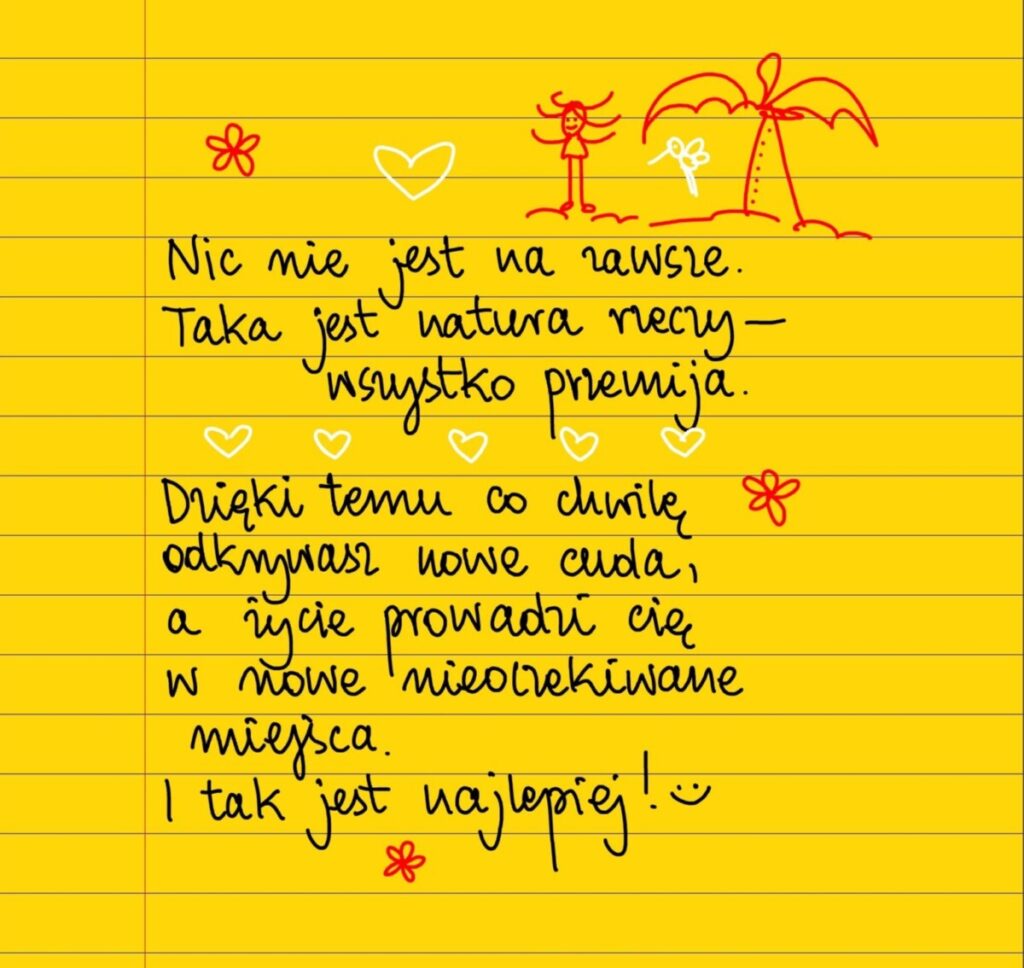 Nic nie jest na zawsze.
Taka jest natura rzeczy –
wszystko przemija.
Dzięki temu co chwilę
odkrywasz nowe cuda,
a życie prowadzi cię
w nowe nieoczekiwane
miejsca.
I tak jest najlepiej! :)